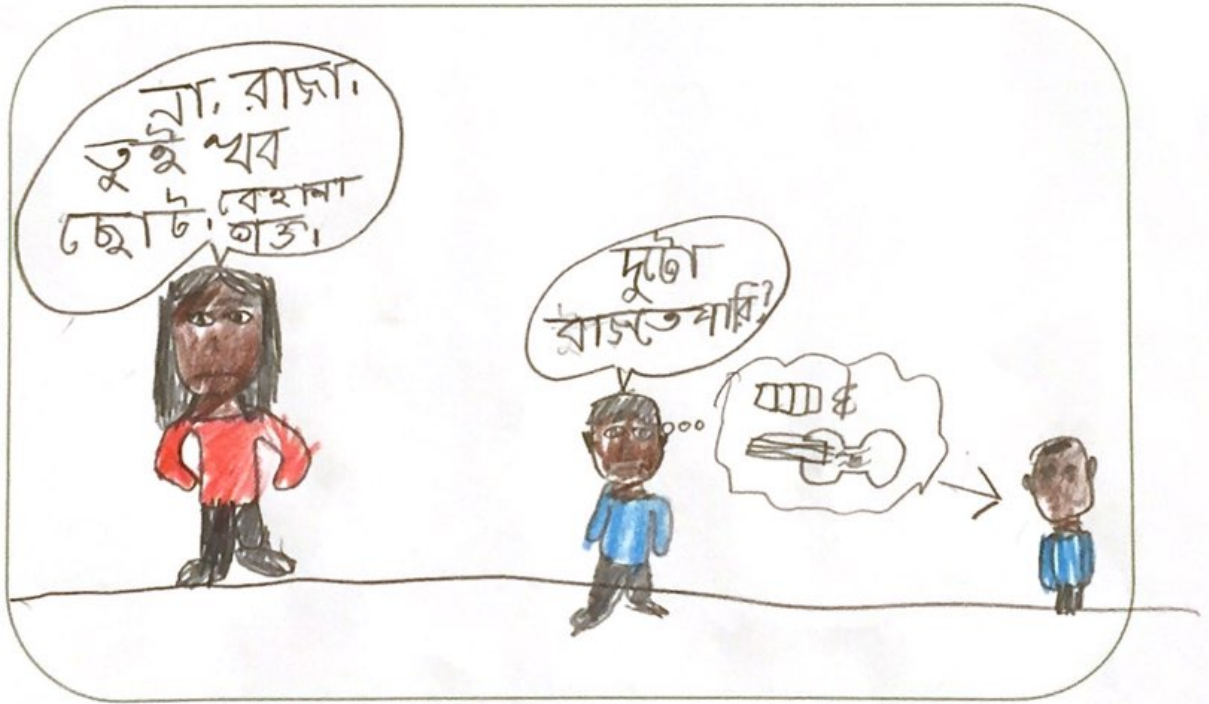 না, রাজা,
তুই খুব
ছোট. বেহালা
শক্ত।
দুটো
বাজাতে পারি?
&